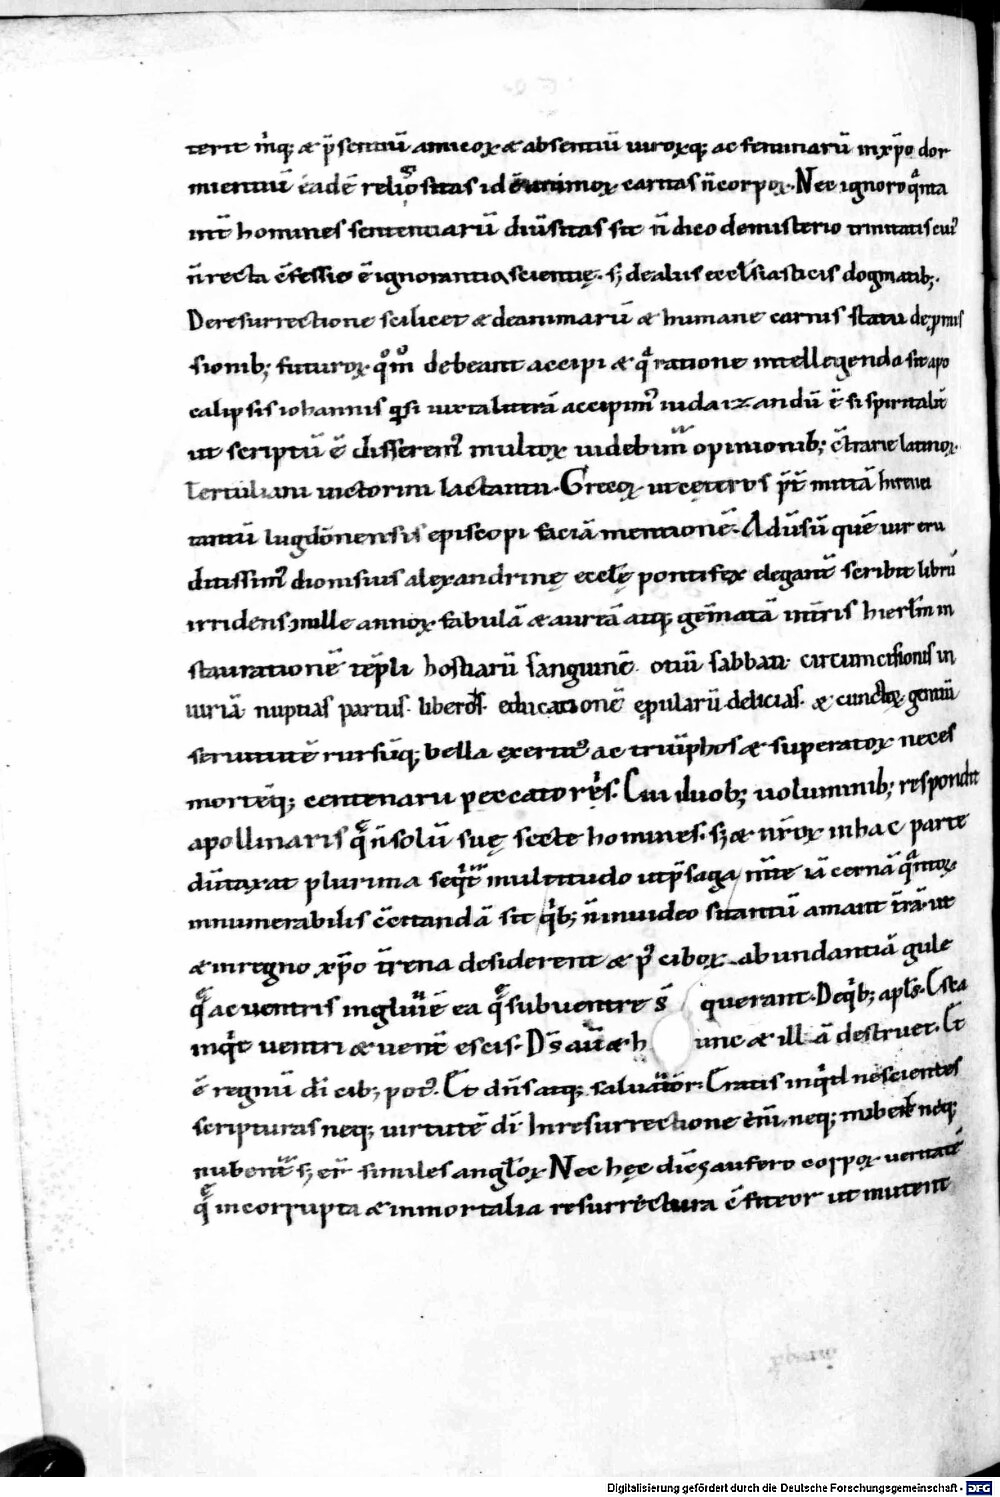 terit m̄q; æ p̄sentiū amicoꝝ æ absentiū uiroꝝq; ac feminarū in xp̄o dor
mientiū eadē religiositas id ē animoꝝ caritas n̄ corpoꝝ. Nec ignoro qͣnta
int̄ homines sententiarū diūsitas sit n̄ dico de misterio trinitatis cui᷒
n̄ recta ēfessio ē ignorantia scientię. s; de aliis eccl̄siasticis dogmatib;.
De resurrectione scilicet æ de animarū æ humane carnis statu de p̱mis
sionib; futuroꝝ. qͦm̊ debeant accipi æ qͣ ratione intellegenda sit apo
calipsis iohannis qͣ̄ si iuxta litterā accipim᷒ iudaizandū ē si spiritalit̄
ut scriptū ē disserem᷒ multoꝝ uidebim̄ opinionib; c̄trarie latinoꝝ.
Tertuliani uictorini lactantii. Grecoꝝ ut cęteros p̄t̄mittā hirenei
tantū lugdōnensis episcopi faciā mentionē. Aduersū quē uir eru
ditissim᷒ dionisius alexandrinę eccl̄ę pontifex elegant̄ scribit librū
irridens mille annoꝝ fabulā æ aureā atq; gēmatā in tr̄ris hierl̄m in
staurationē tēpli hostiarū sanguinē. otiū sabbati. circumcisionis in
iuriā nuptias partus. liberoꝝ. educationē ępularū delicias. æ cunctaꝝ gentiū
seruitutē rursūq; bella exercit᷒ ac triūphos æ superatoꝝ neces
mortēq; centenarii peccatoris. Cui duob; uoluminib; respondit
apollinaris quē n̄ solū suę secte homines. s; æ nr̄oꝝ in hac parte
dūtaxat plurima seqͥt̄ multitudo ut p̄saga m̄te iā cernā qͣntoꝝ.
innumerabilis c̄citanda sit qͥb; n̄ inuideo si tantū amant tr̄rā. ut
æ in regno xp̄o tr̄rena desiderent æ p᷒ ciboꝝ abundantiā gule
q̄ ac uentris ingluuiē ea q̄ sub uentre s̄ querant. De qͥb; apl̄s. Esca
inqͥt uentri æ uent̄ escis. Ds̄ aū æ hunc æ illā destruet. Et
ē regnū dī cib; pot᷒. Et dn̄s atq; saluator. Erratis inqͥd nescientes
scripturas neq; uirtutē dī. In resurrectione en̄i, neq; nubent neq;
nubent̄ s; er̄ similes angl̄oꝝ. Nec hęc dicēs aufero corpoꝝ ueritatē
q̄ incorrupta æ inmortalia resurrectura c̄fiteor ut mutent
Digitalisierung gefördert durch die Deutsche Forschungsgemeinschaft - DFG